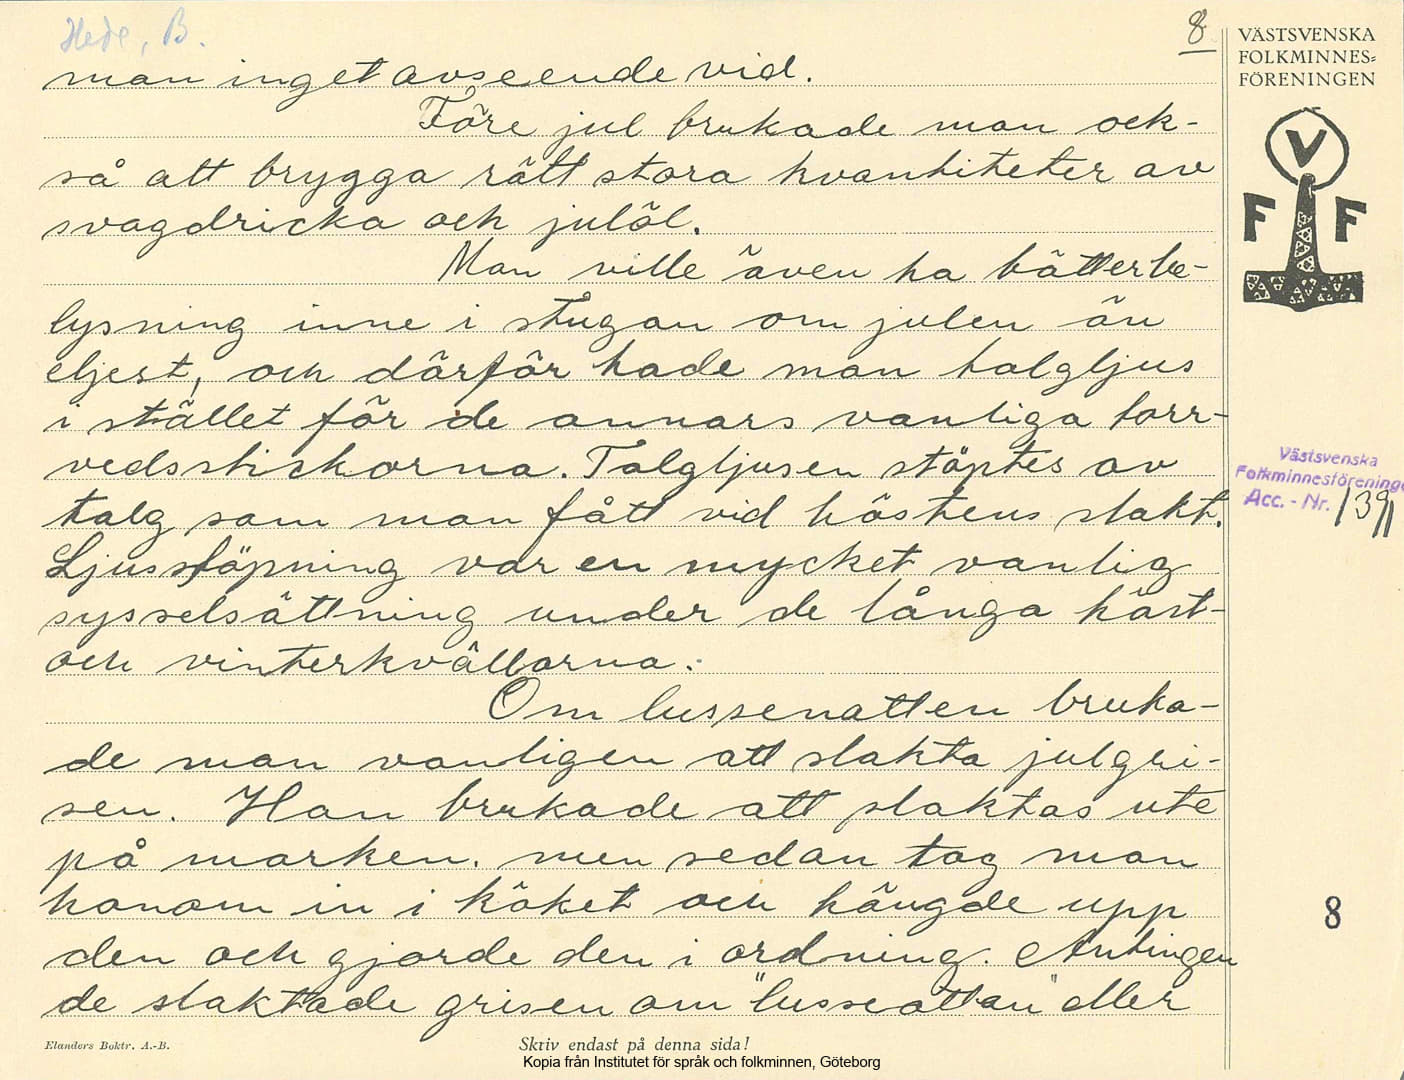 Hede, B.
8
man inget avseende vid.
Före jul brukade man ock-
så att brygga rätt stora kvantiteter av
svagdricka och julöl.
Man ville även ha bätterbe-
lysning inne i stugan om julen än
eljest, och därför hade man talgljus
i stället för de annars vanliga torr-
vedsstickorna. Talgljusen stöptes av
talg som man fått vid höstens slakt.
Ljusstöpning var en mycket vanlig
sysselsättning under de långa höst-
och vinterkvällarna.
Om lussenatten bruka-
de man vanligen att slakta julgri-
sen. Han brukade att slaktas ute
på marken, men sedan tog man
honom in i köket och hängde upp
den och gjorde den i ordning. Antingen
de slaktade grisen om "lusseattan" eller
VÄSTSVENSKA
FOLKMINNES=
FÖRENINGEN
V
F F
Västsvenska
Folkminnesföreninge
Acc. - Nr. 1391
8
Elanders Boktr. A.-B.
Skriv endast på denna sida!
Kopia från Institutet för språk och folkminnen, Göteborg